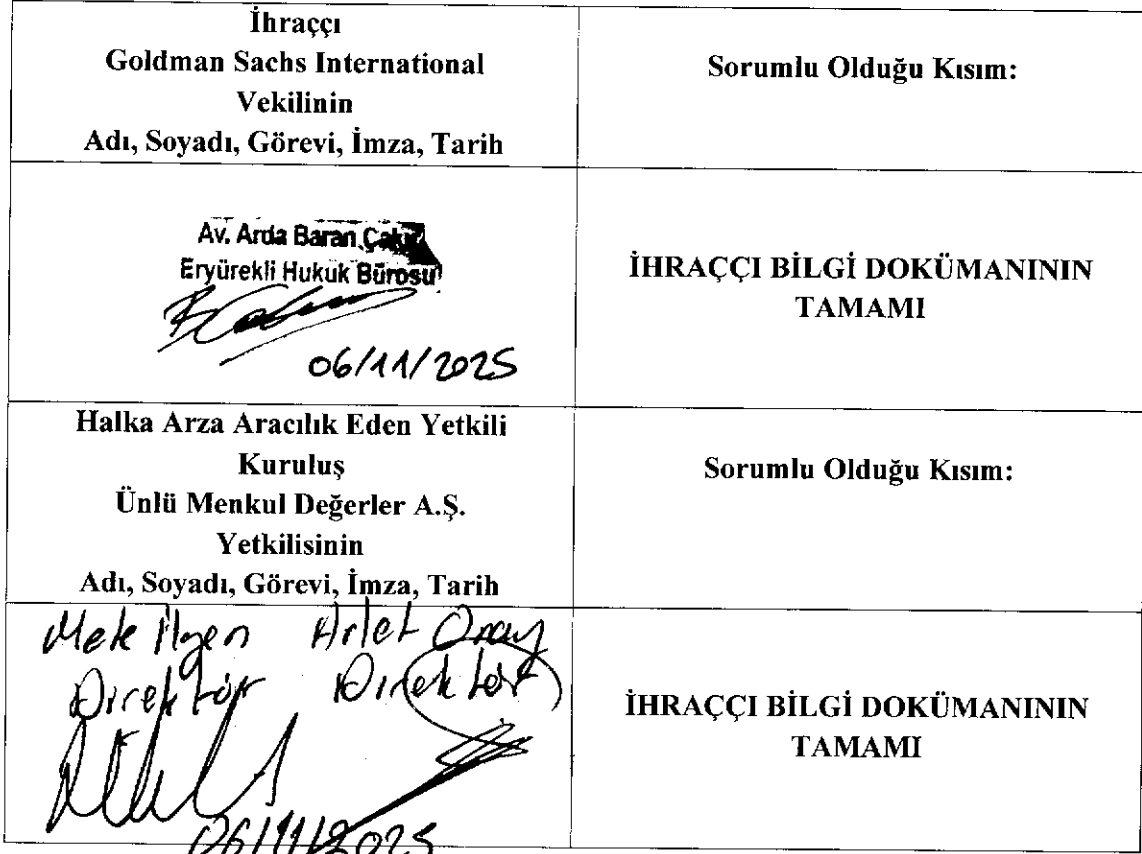 İhraççı
Goldman Sachs International
Vekilinin
Adı, Soyadı, Görevi, İmza, Tarih
Sorumlu Olduğu Kısım:
Av. Arda Baran Çakır
Eryürekli Hukuk Bürosu
06/11/2025
İHRAÇÇI BİLGİ DOKÜMANININ
TAMAMI
Halka Arza Aracılık Eden Yetkili
Kuruluş
Ünlü Menkul Değerler A.Ş.
Yetkilisinin
Adı, Soyadı, Görevi, İmza, Tarih
Sorumlu Olduğu Kısım:
Arlet Onay
Direktör Direktör
06/11/2025
İHRAÇÇI BİLGİ DOKÜMANININ
TAMAMI